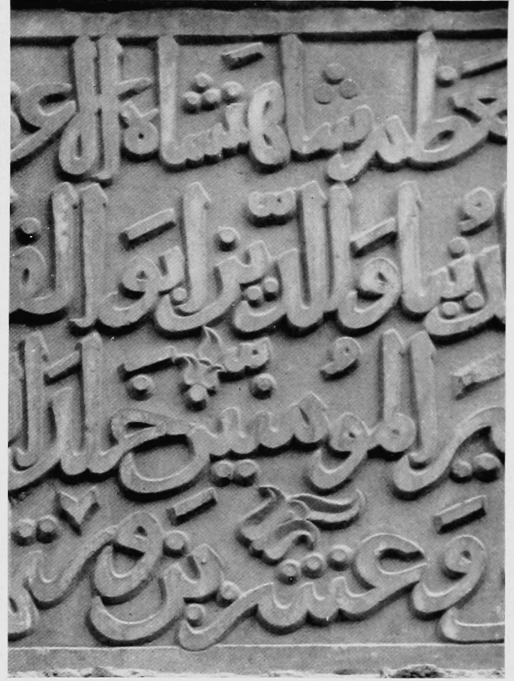 عظم شاهنشاه الاعظ
دنيا والدين ابو الف
ير المؤمنين خلد ا
و عشرين و